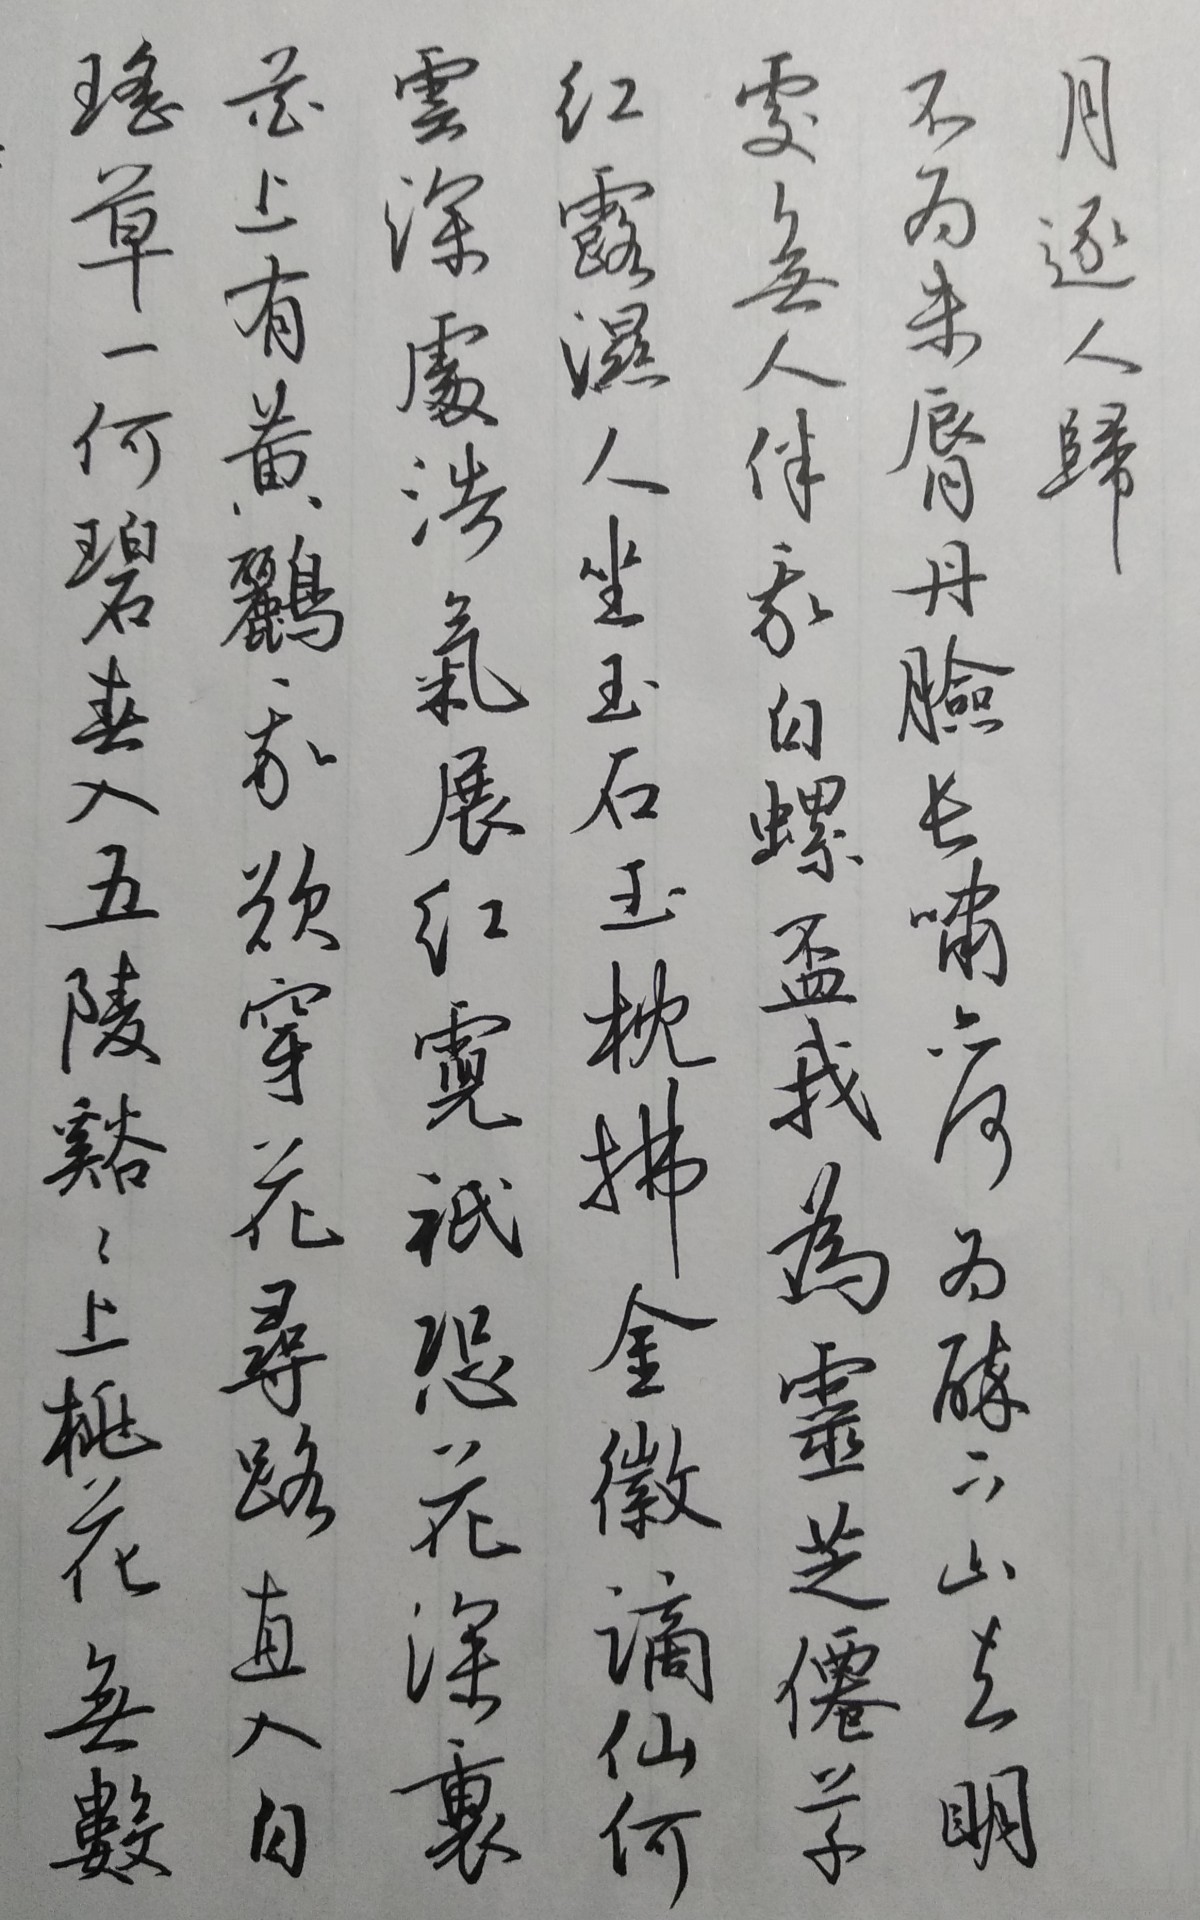 瑤草一何碧春入五陵谿〻上桃花無數
花上有黃鸝我欲穿花尋路直入白
雲深處浩氣展红霓祇恐花深裏
红露濕人坐玉石玉枕拂金徽謫仙何
處無人伴我白螺盃我為靈芝僊草
不为朱脣丹臉长嘯亦何为醉下山去明
月逐人歸